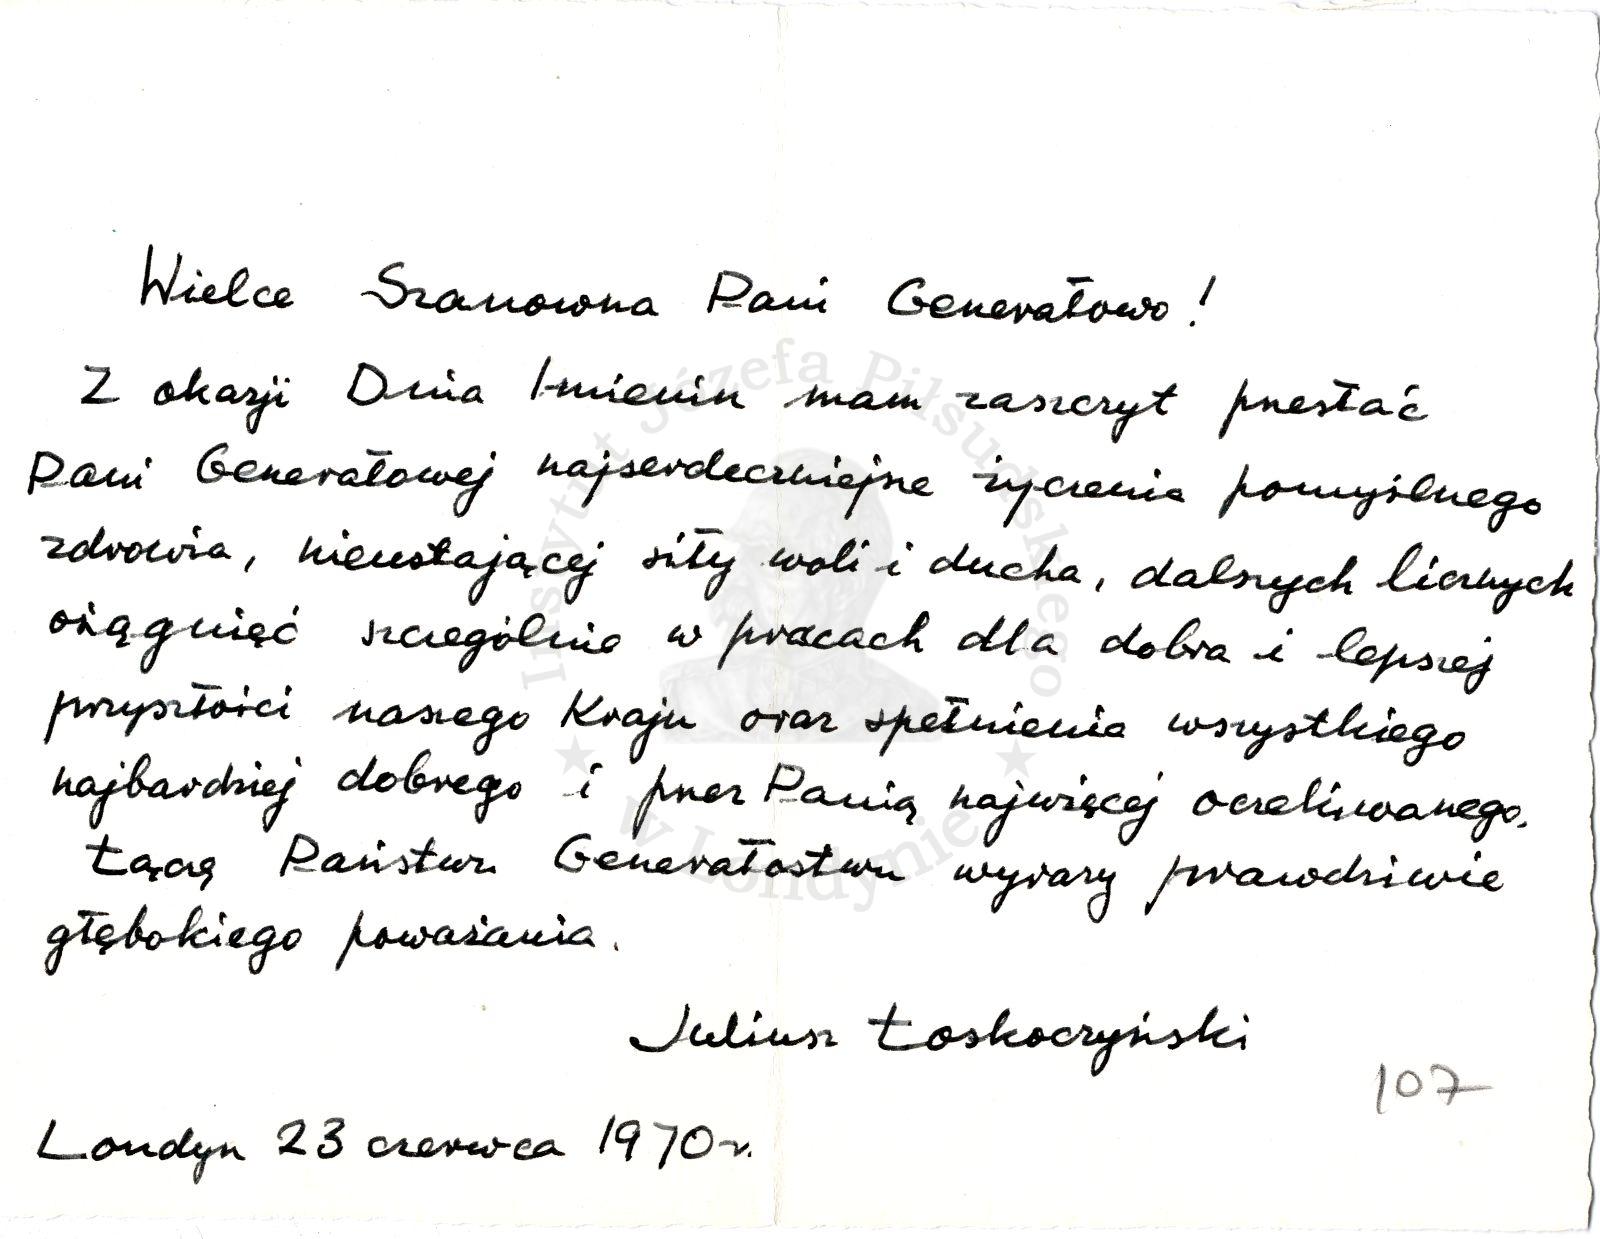 Wielce Szanowna Pani Generałowo!
Z okazji Dnia Imienin mam zaszczyt przesłać
Pani Generałowej najserdeczniejsze życzenia pomyślnego
zdrowia, nieustającej siły woli i ducha, dalszych licznych
osiągnięć szczególnie w pracach dla dobra i lepszej
przyszłości naszego Kraju oraz spełnienia wszystkiego
najbardziej dobrego i przez Panią najwięcej oczekiwanego.
Łączę Państwu Generałostwu wyrazy prawdziwie
głębokiego poważania.
Juliusz Łoskoczyński
107
Londyn 23 czerwca 1970 r.
Instytut Józefa Piłsudskiego
w Londynie